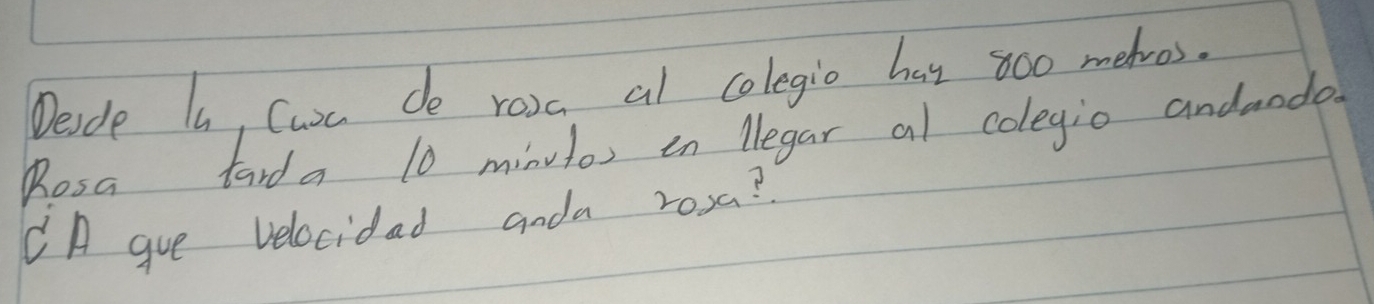 Desde la, Casa de rosa al colegio hay 800 metros.
Rosa tarda 10 minutos en llegar al colegio andando.
¿A que velocidad anda rosa?.